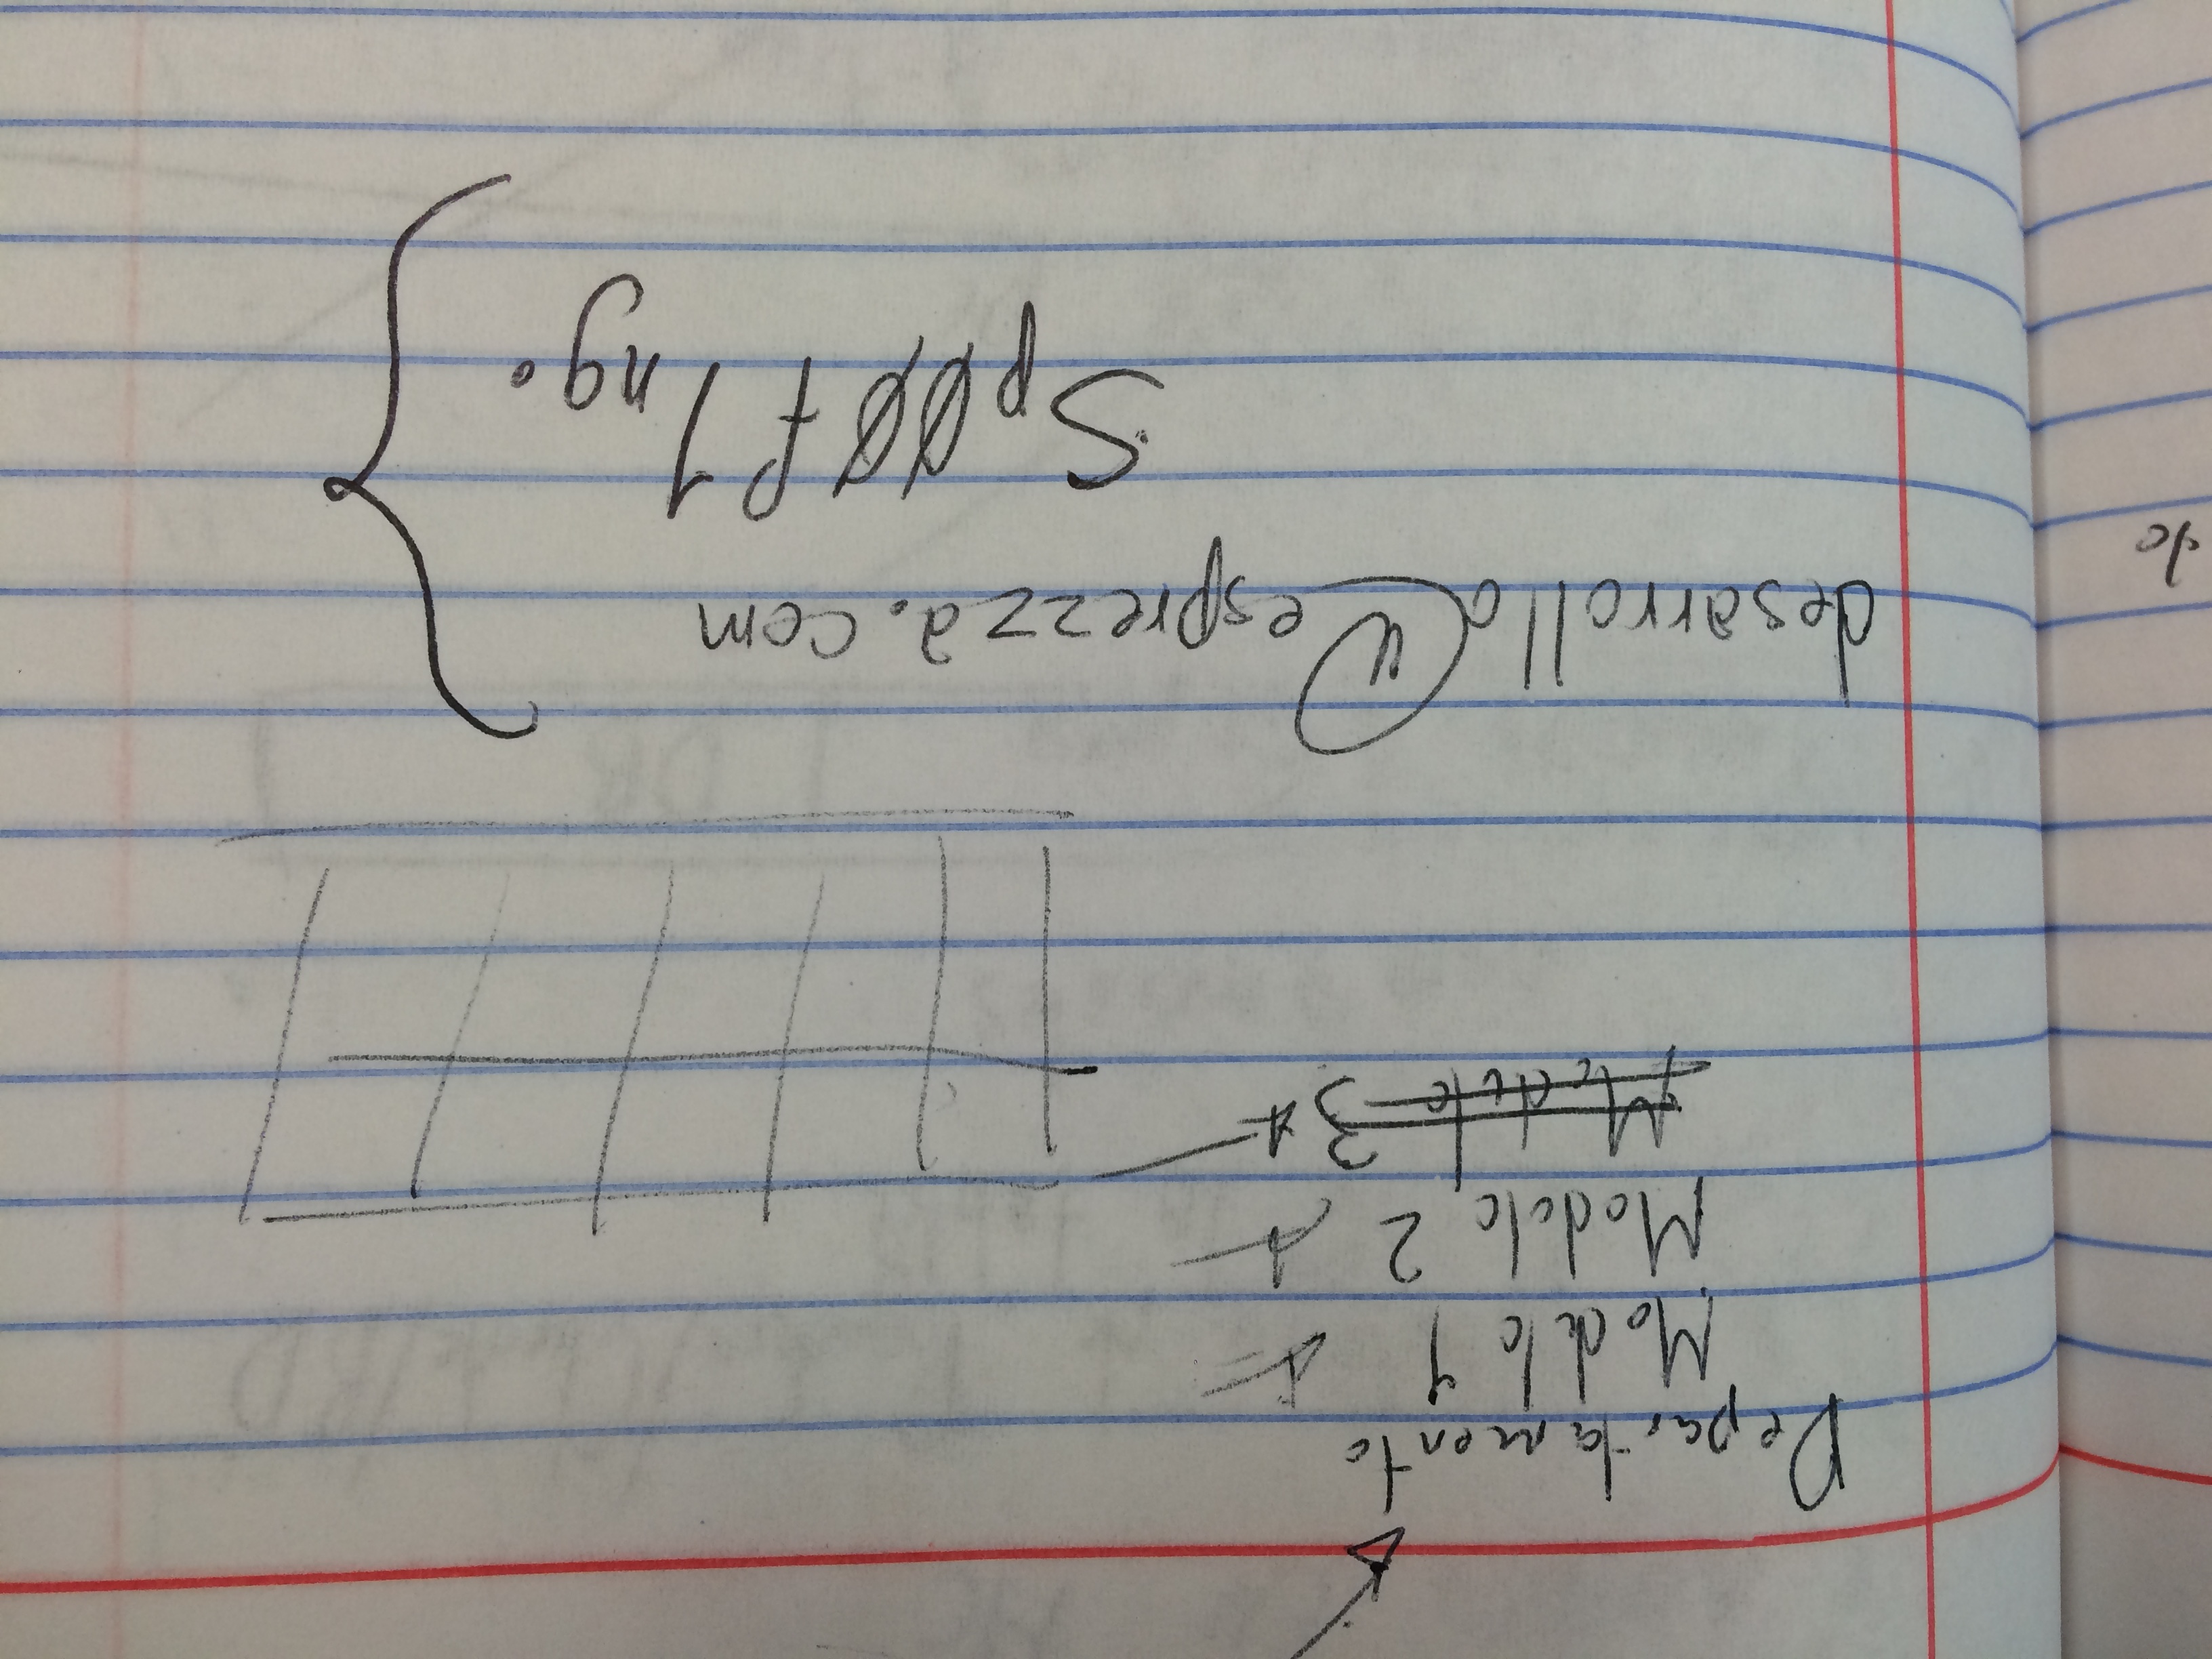 Departamento
Modulo 1
Modulo 2
Modulo 3
desarrollo@esprezza.com
Spøøf1ng.